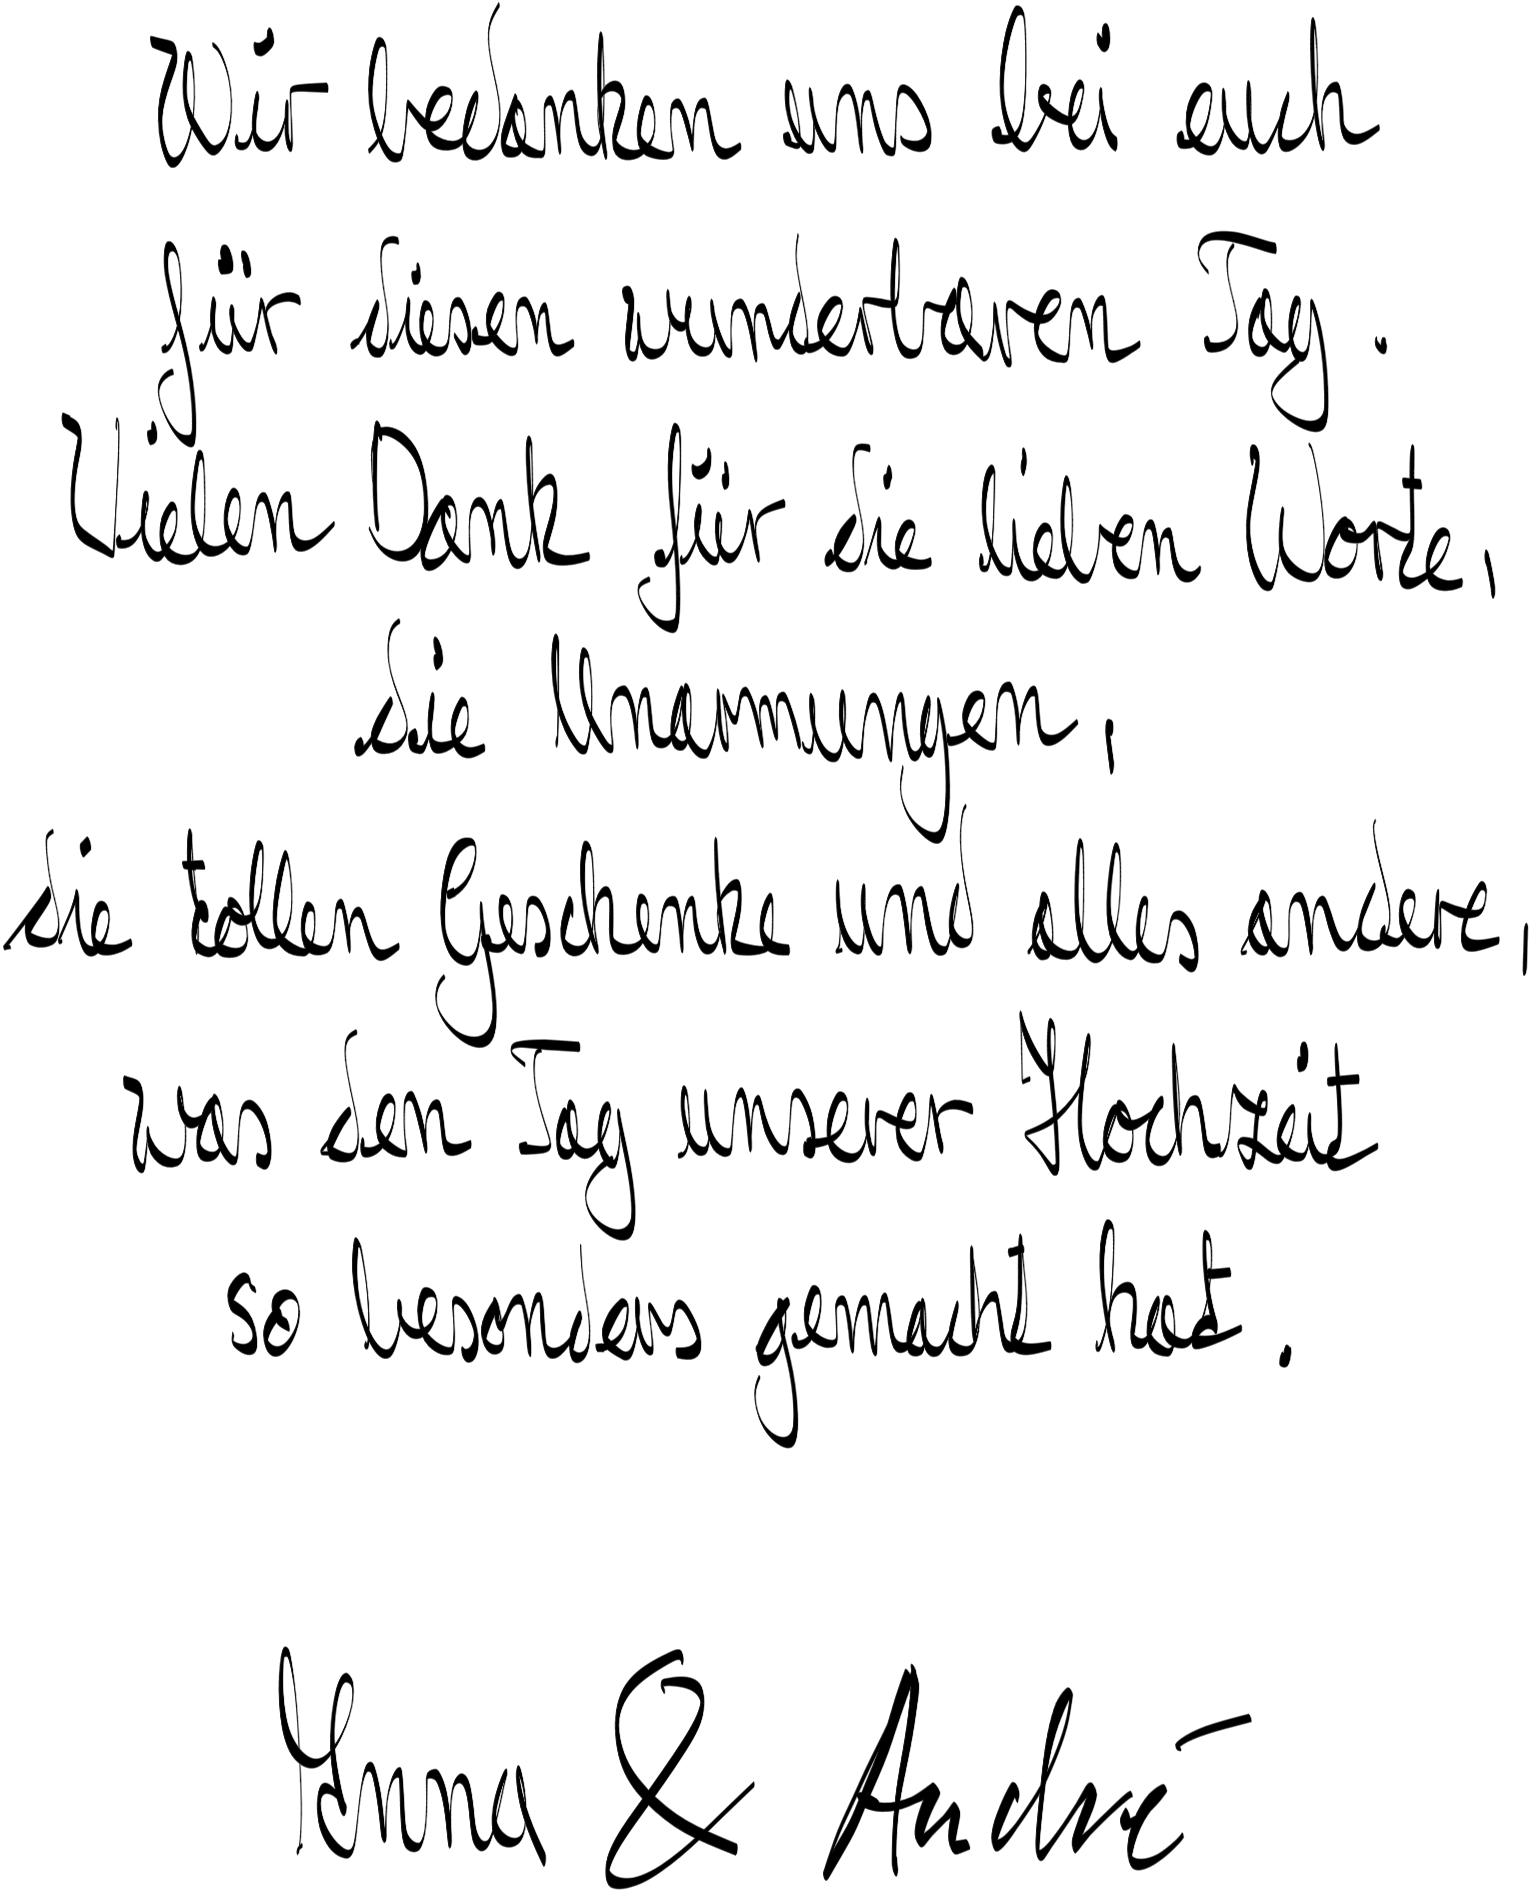 Wir bedanken uns bei euch
für diesen wunderbaren Tag.
Vielen Dank für die lieben Worte,
die Umarmungen,
die tollen Geschenke und alles andere,
was den Tag unserer Hochzeit
so besonders gemacht hat.
& André